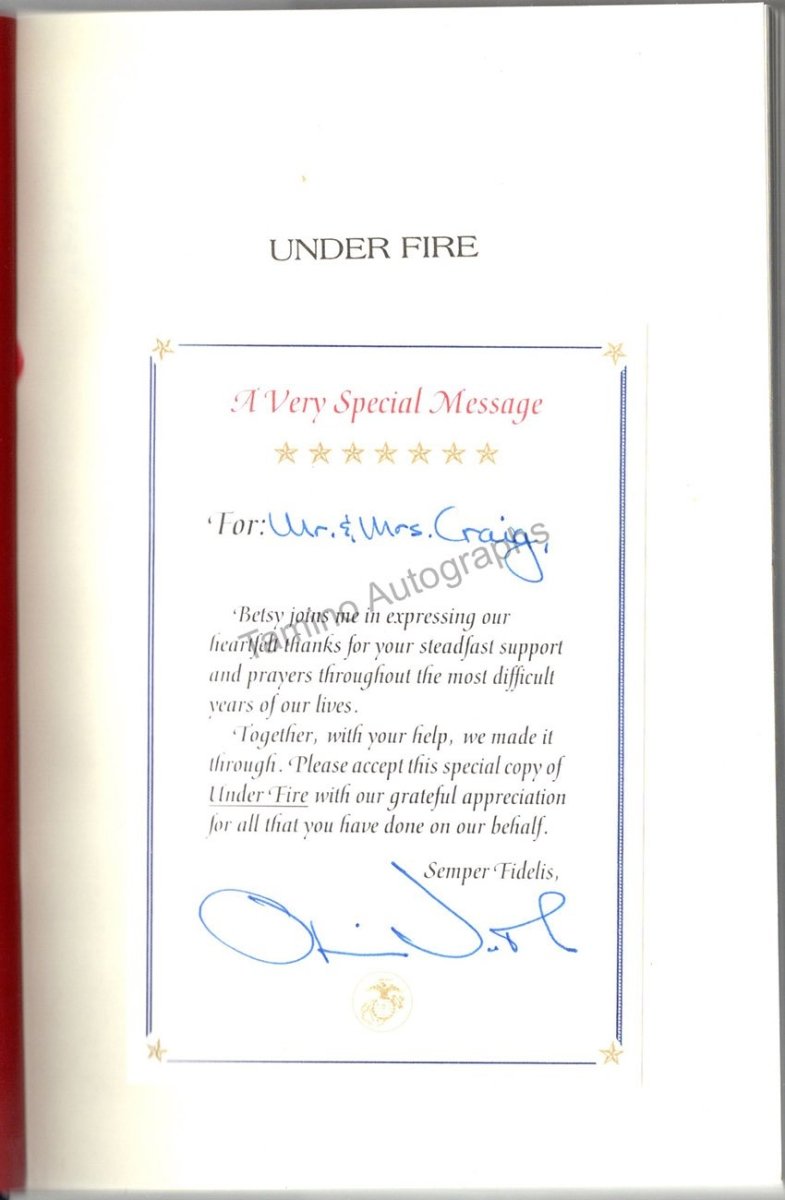 UNDER FIRE
A Very Special Message
For: Mr. & Mrs. Craig,
Tamino Autographs
Betsy joins me in expressing our
heartfelt thanks for your steadfast support
and prayers throughout the most difficult
years of our lives.
Together, with your help, we made it
through. Please accept this special copy of
Under Fire with our grateful appreciation
for all that you have done on our behalf.
Semper Fidelis,
Oliver North